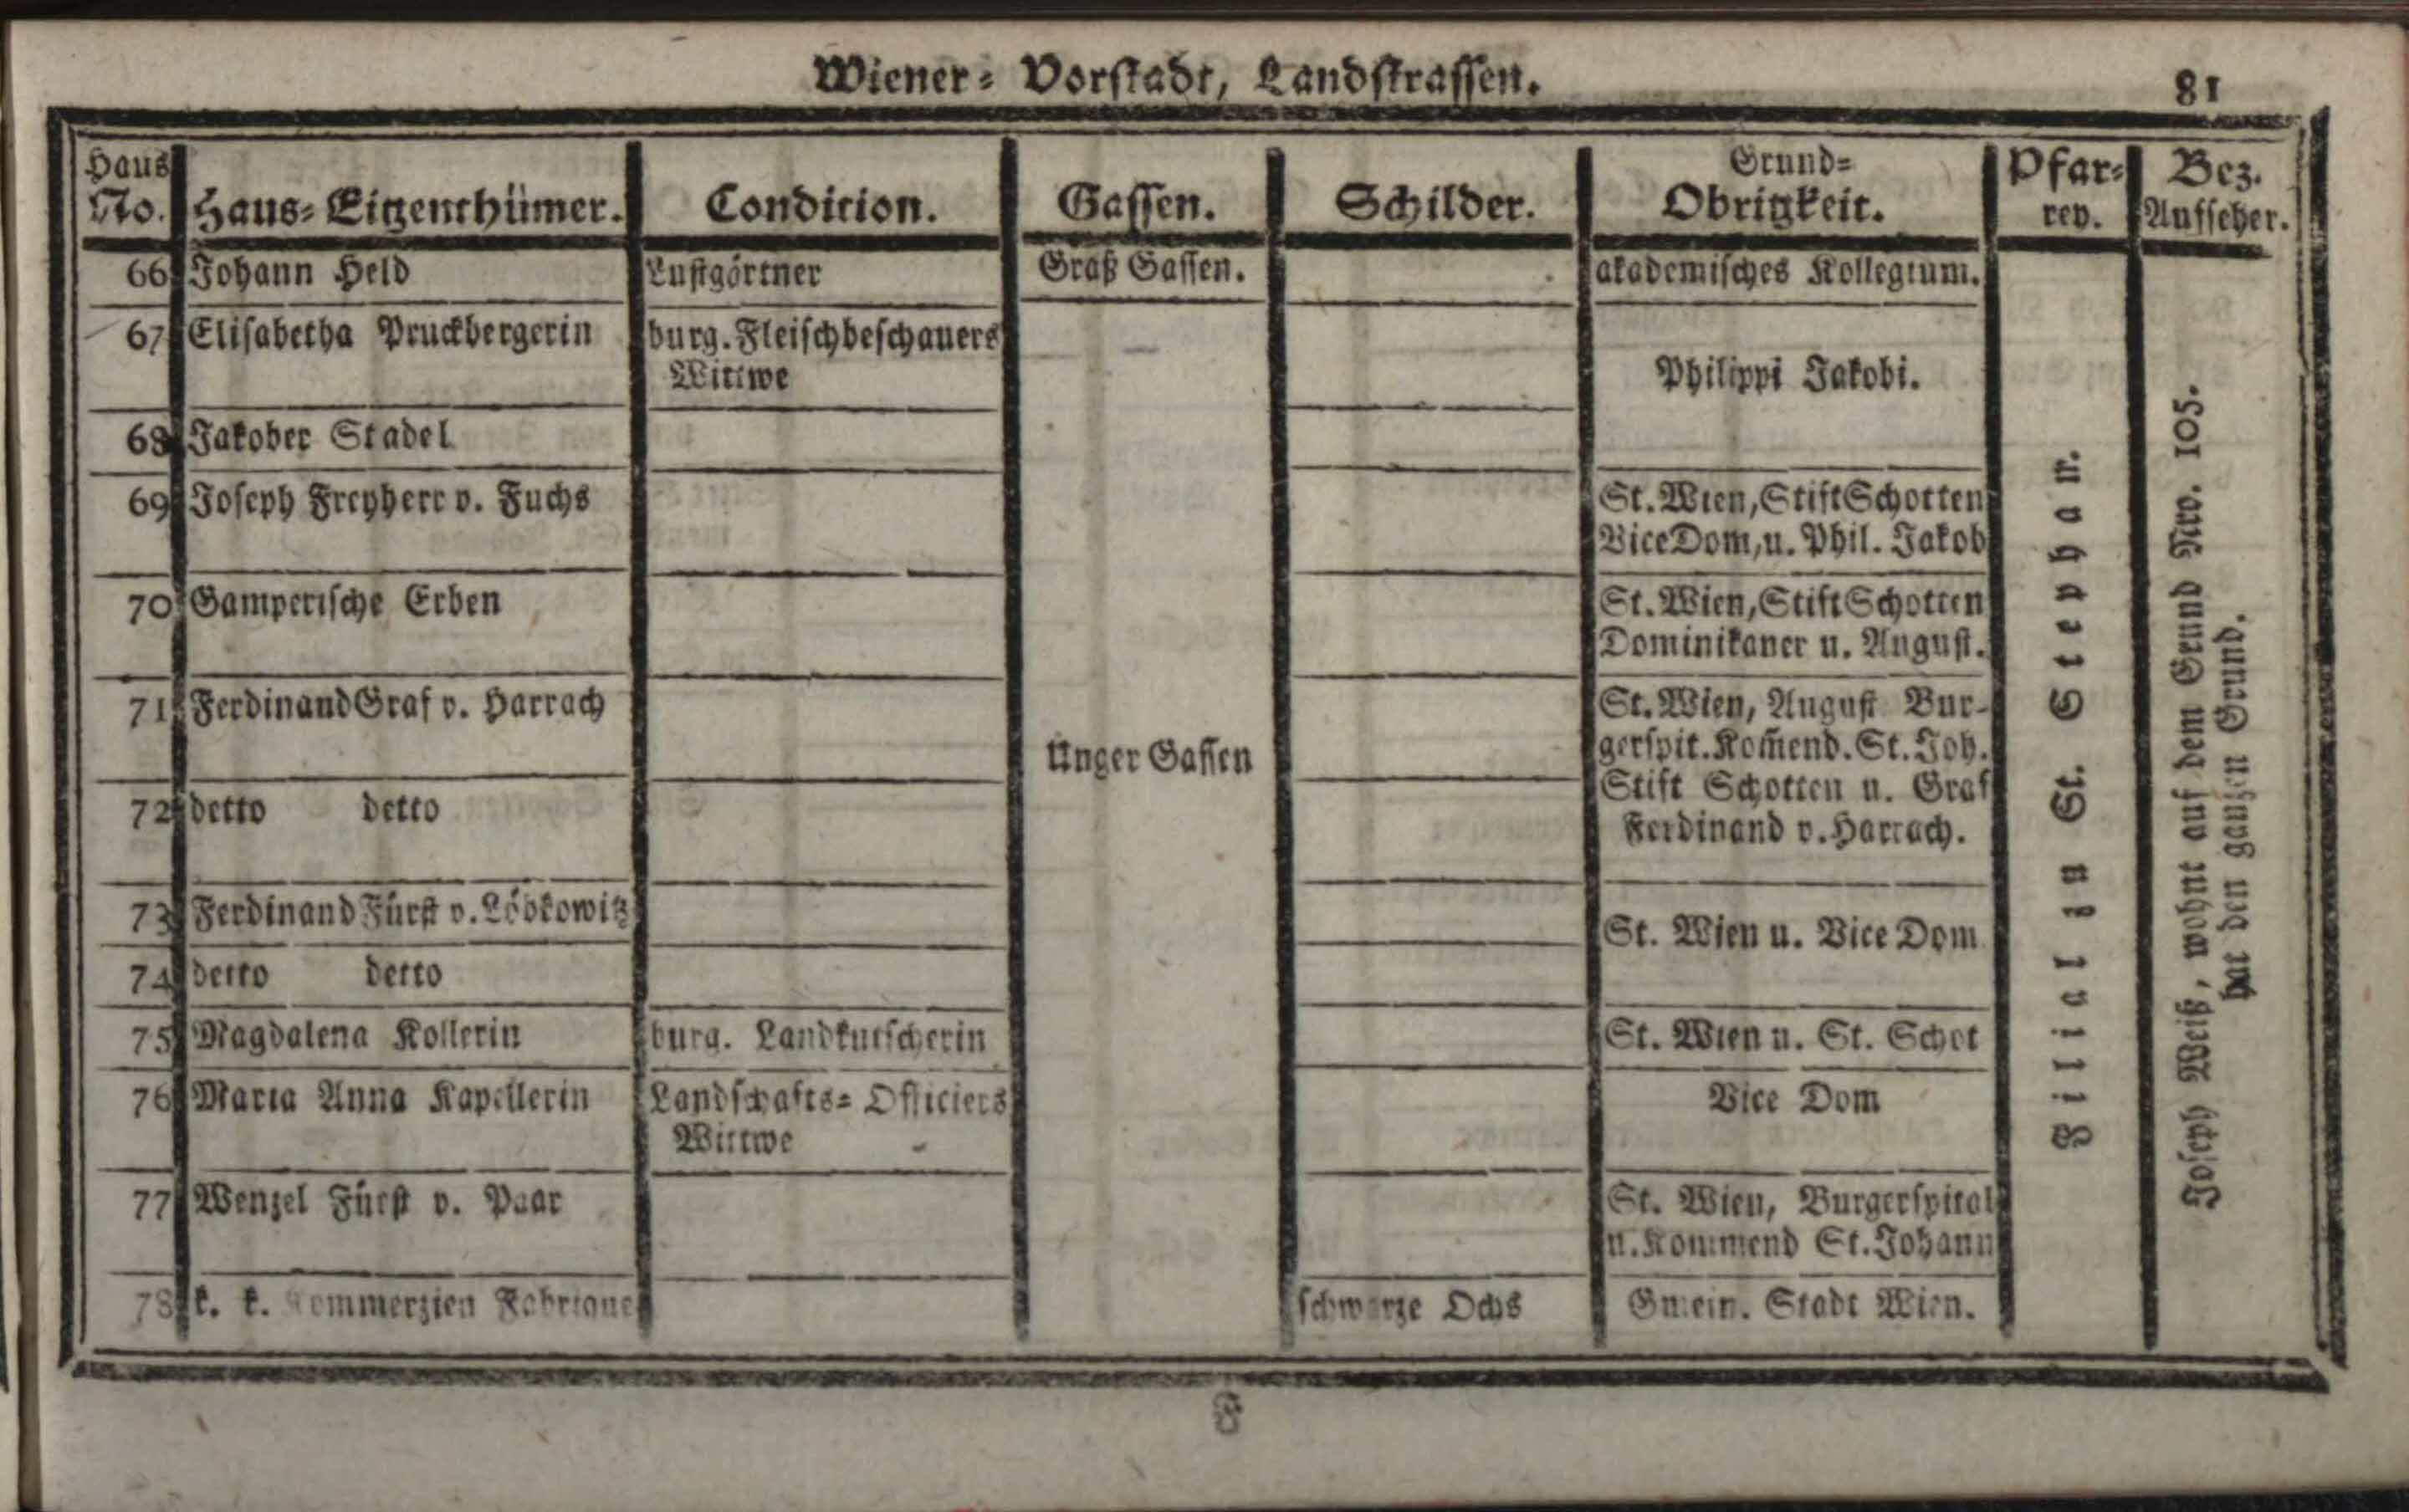 Wiener= Vorstadt, Landstrassen.
81
Haus No. Haus=Eigenthümer. Condition. Gassen. Schilder. Grund= Obrigkeit. Pfar= rey. Bez. Aufseher.
66 Johann Held Lustgärtner Graß Gassen. akademisches Kollegium.
67 Elisabetha Pruckbergerin burg. Fleischbeschauers
Wittwe Philippi Jakobi.
68 Jakober Stadel
69 Joseph Freyherr v. Fuchs St. Wien, Stift Schotten
Vice Dom, u. Phil. Jakob
70 Gamperische Erben St. Wien, Stift Schotten
Dominikaner u. August.
71 Ferdinand Graf v. Harrach St. Wien, August Bur-
Unger Gassen gerspit. Kom̃end. St. Joh.
72 detto detto Stift Schotten u. Graf
Ferdinand v. Harrach.
73 Ferdinand Fürst v. Lobkowitz St. Wien u. Vice Dom
74 detto detto
75 Magdalena Kollerin burg. Landkutscherin St. Wien u. St. Schot
76 Maria Anna Kapellerin Landschafts= Officiers Vice Dom
Wittwe
77 Wenzel Fürst v. Paar St. Wien, Burgerspital
u. Kommend St. Johann
78 k. k. Kommerzien Fabrique schwarze Ochs Gmein. Stadt Wien.
Filial in St. Stephan.
Joseph Weiß, wohnt auf dem Grund Nro. 105.
hat den ganzen Grund.
F